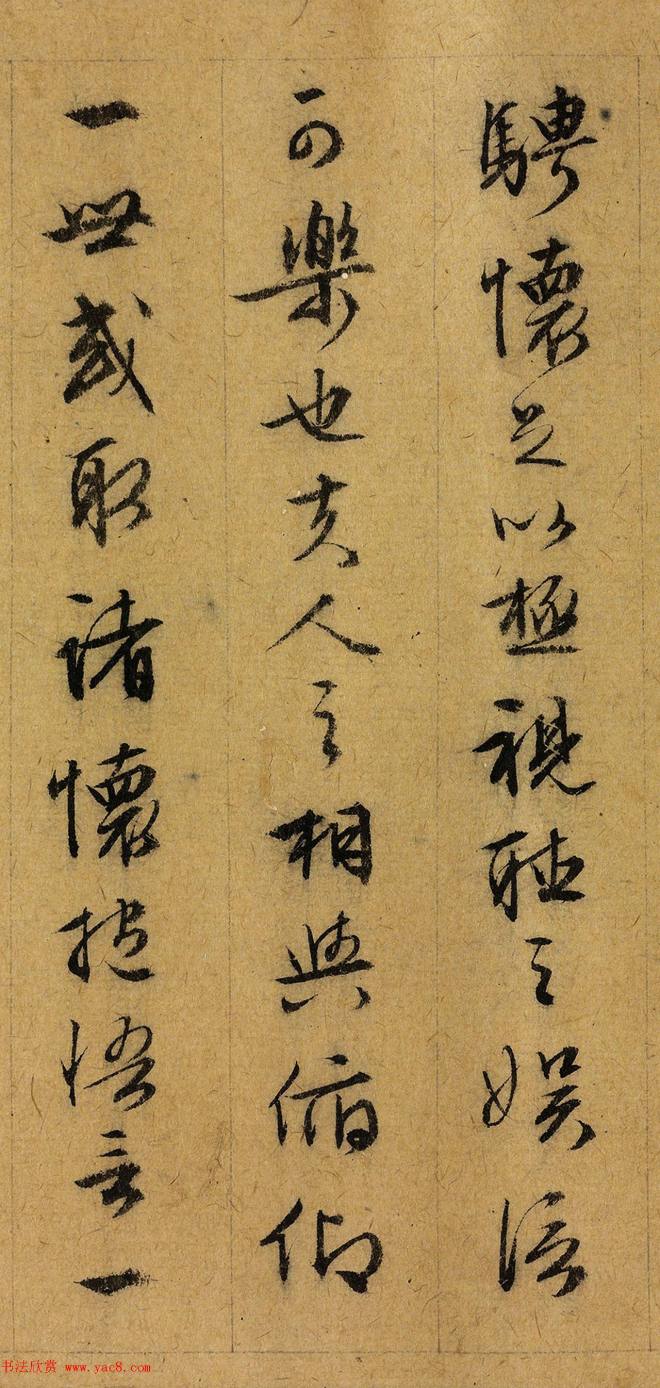 騁懷足以極視聽之娛信
可樂也夫人之相與俯仰
一世或取諸懷抱悟言一
书法欣赏 www.yac8.com